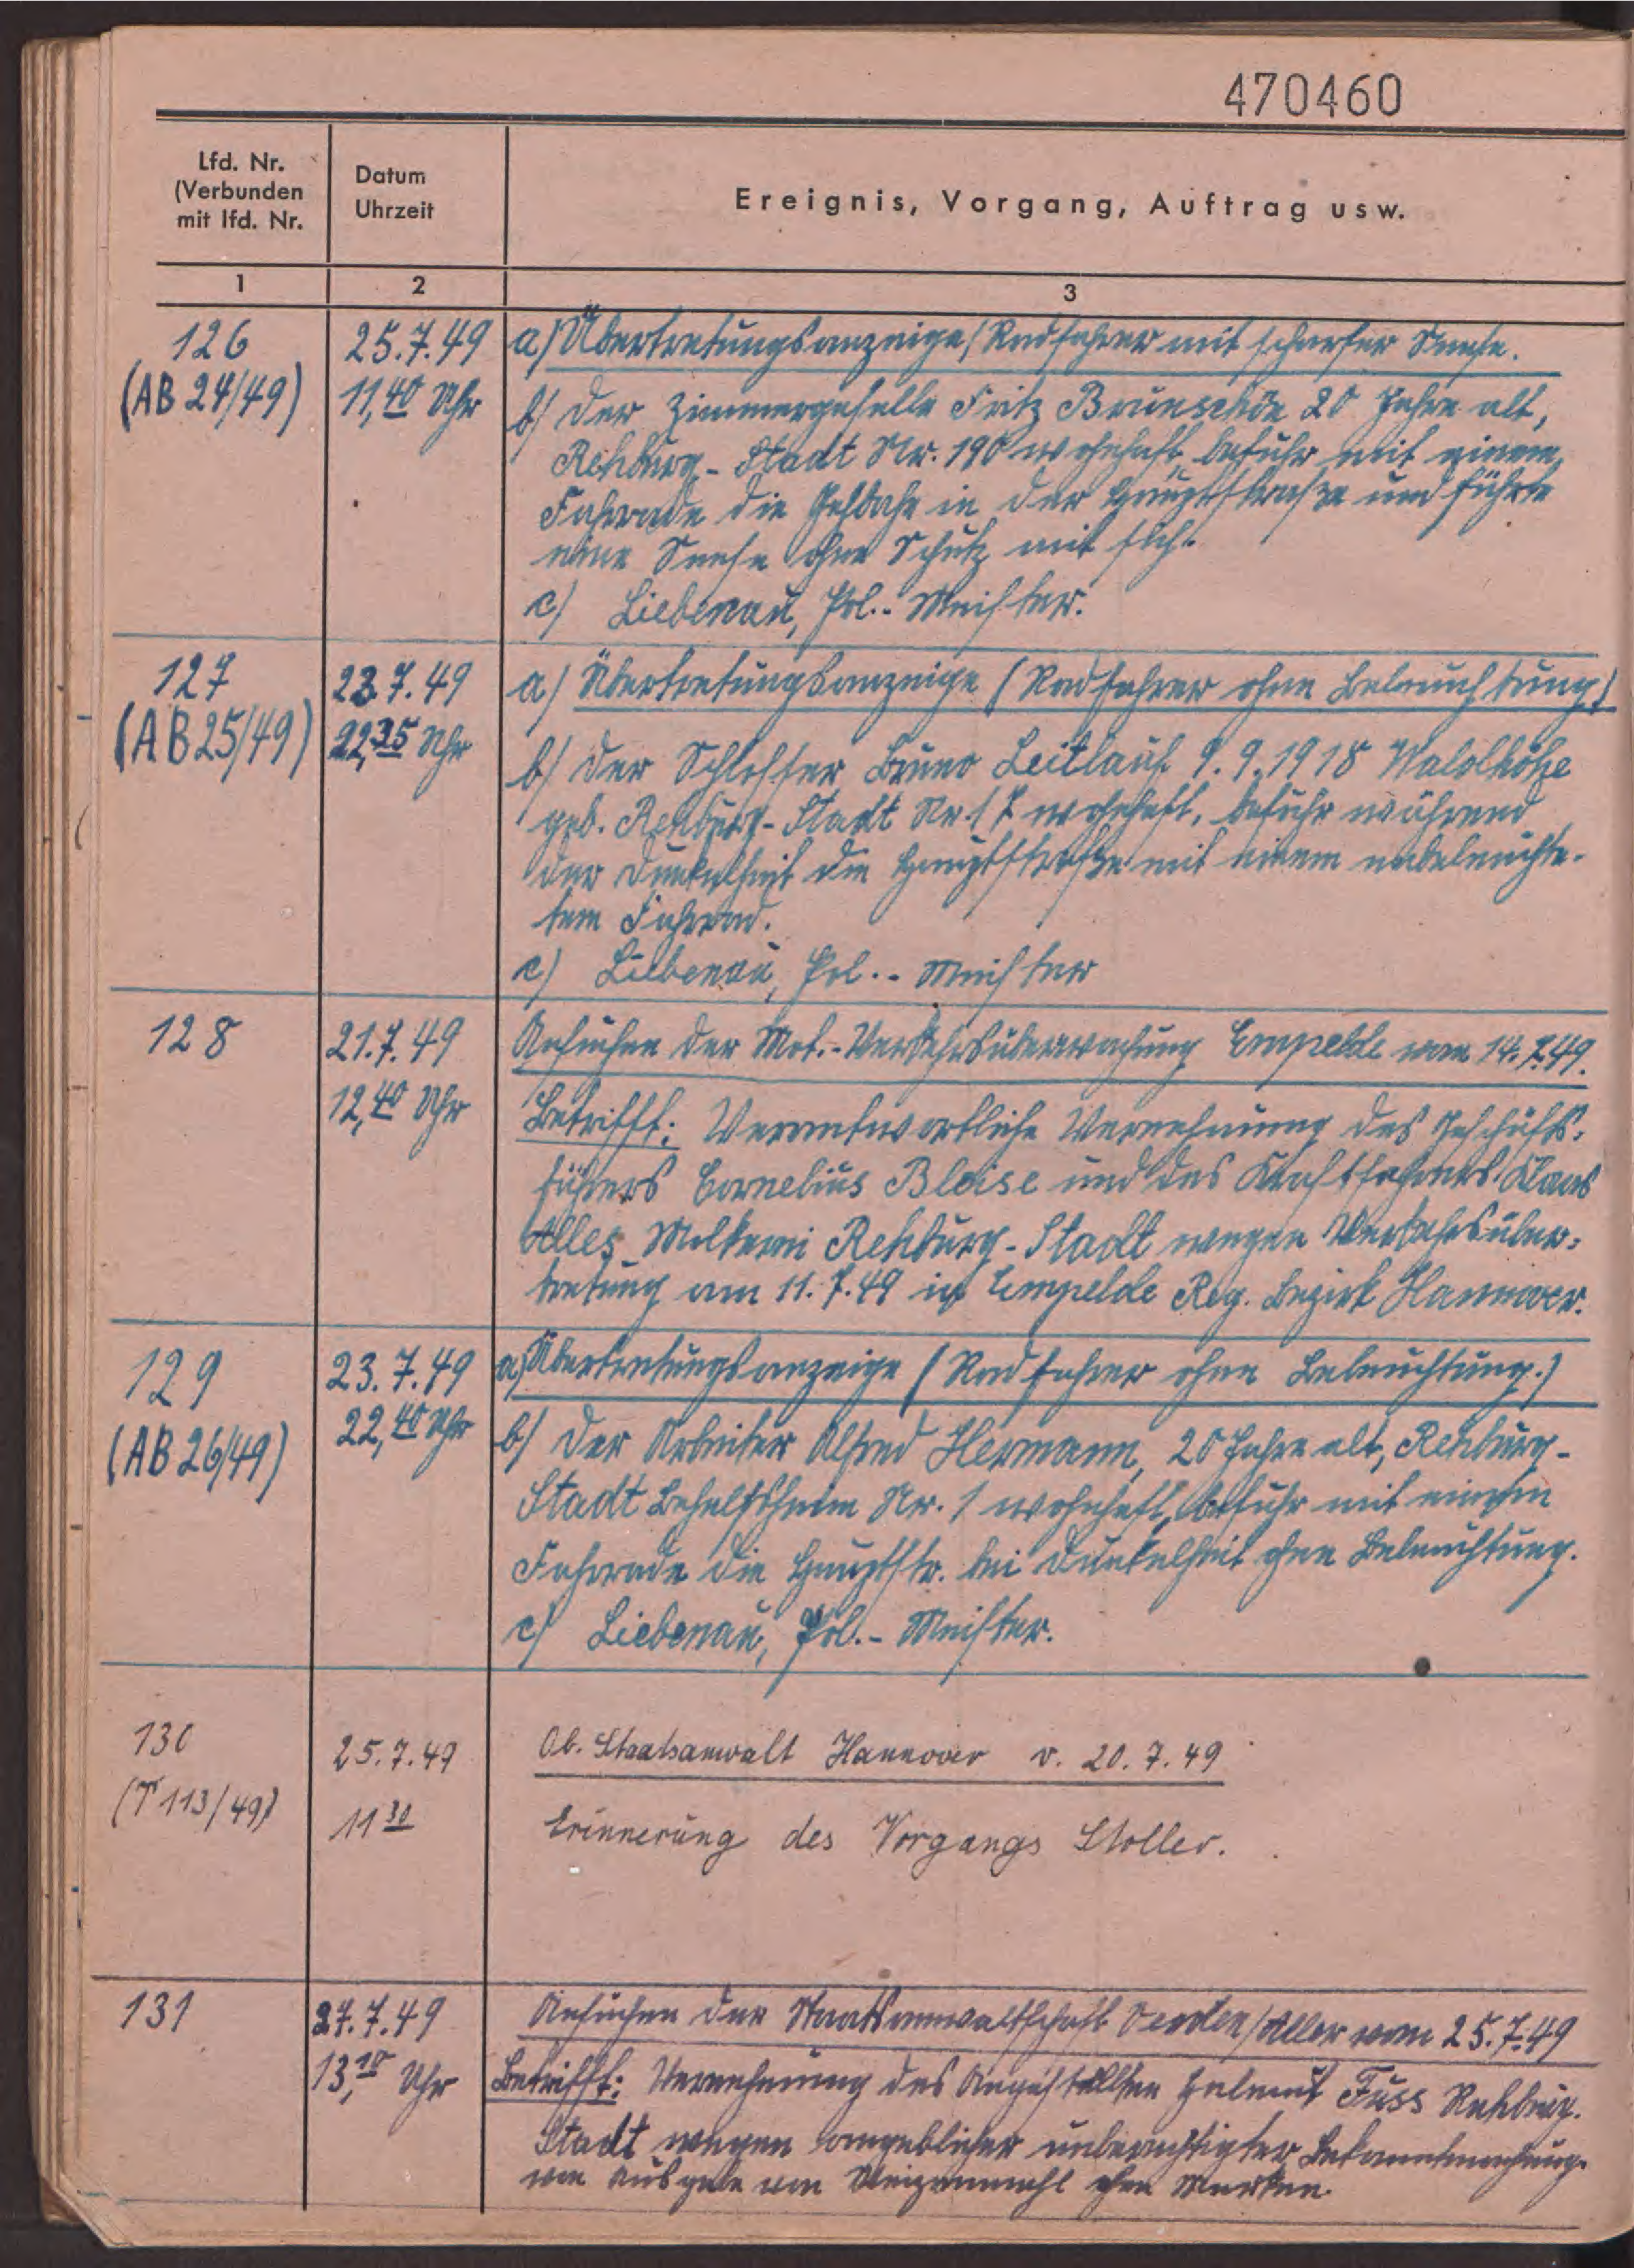 470460
Lfd. Nr.
(Verbunden
mit lfd. Nr.
Datum
Uhrzeit
Ereignis, Vorgang, Auftrag usw.
1
2
3
126
(AB 24/49)
25.7.49
11,40 Uhr
a) Übertretungsanzeige (Radfahrer mit scharfer Sense.
b) Der Zimmergeselle Fritz 20 Jahre alt,
Rehburg-Stadt Nr. 190 wohnhaft, befuhr mit einem
Fahrrade die Gehbahn in der Hauptstraße und führte
eine Sense ohne Schutz mit sich.
c) Liebenau, Pol.-Meister.
127
(AB 25/49)
23.7.49
22,35 Uhr
a) Übertretungsanzeige (Radfahrer ohne Beleuchtung)
b) Der Schlosser Bruno Leitlauf 9.9.1918 Waldhöhe
geb. Rehburg-Stadt Nr. 17 wohnhaft, befuhr während
der Dunkelheit die Hauptstraße mit einem unbeleuchte-
tem Fahrrad.
c) Liebenau, Pol.-Meister
128
21.7.49
12,40 Uhr
Ansuchen der Mot.-Verkehrsüberwachung Empelde vom 14.7.49.
Betrifft: Verantwortliche Vernehmung des Geschäfts-
führers Cornelius Bloise und des Kraftfahrers Klaus
Alles Molkerei Rehburg-Stadt wegen Verkehrsüber-
tretung am 11.7.49 in Empelde Reg. Bezirk Hannover.
129
(AB 26/49)
23.7.49
22,40 Uhr
a) Übertretungsanzeige (Radfahrer ohne Beleuchtung.)
b) Der Arbeiter Alfred Hermann, 20 Jahre alt, Rehburg-
Stadt Behelfsheim Nr. 1 wohnhaft, befuhr mit einem
Fahrrade die Hauptstr. bei Dunkelheit ohne Beleuchtung.
c) Liebenau, Pol.-Meister.
130
(T 113/49)
25.7.49
11 30
Ob. Staatsanwalt Hannover v. 20.7.49
Erinnerung des Vorgangs Stoller.
131
27.7.49
13,10 Uhr
Ansuchen der Staatsanwaltschaft Verden/Aller vom 25.7.49
Betrifft: Vernehmung des Angestellten Helmut Fuss Rehburg-
Stadt wegen angeblicher unberechtigter Bekanntmachung
von Ausgabe von Weizenmehl ohne Marken.